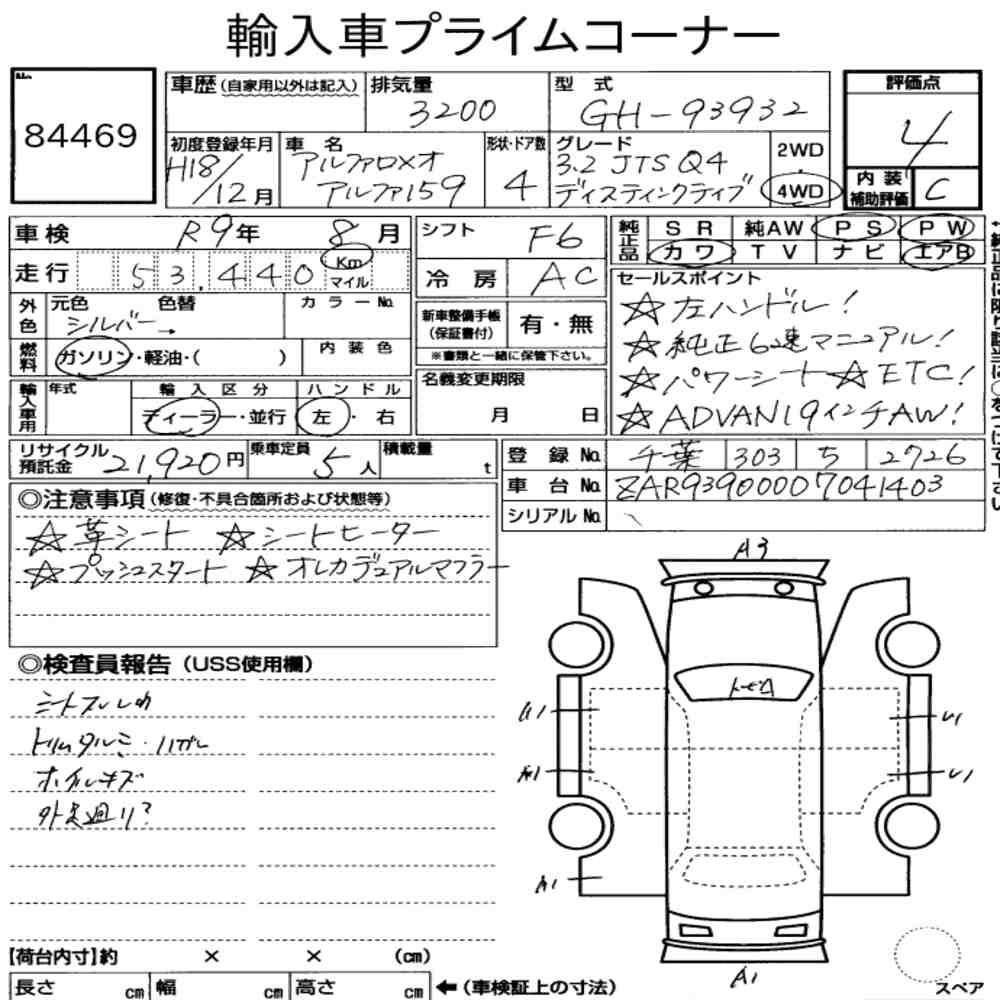 輸入車プライムコーナー
No.
84469
車歴 (自家用以外は記入) 排気量 3200 型式 GH-93932
初度登録年月 H18/12月 車名 アルファロメオ アルファ159 形状・ドア数 4 グレード 3.2 JTS Q4 ディスティンクティブ 2WD 4WD
評価点 4
内装補助評価 C
車検 R9年 8月
走行 53,440 Km マイル
シフト F6
冷房 AC
純正品 SR 純AW PS PW
カワ TV ナビ エアB
外色 元色 シルバー 色替 → カラーNo.
燃料 ガソリン・軽油・( ) 内装色
新車整備手帳(保証書付) 有・無
※書類と一緒に保管下さい。
輸入車用 年式 輸入区分 ディーラー・並行 ハンドル 左・右
名義変更期限 月 日
セールスポイント
☆左ハンドル!
☆純正6速マニュアル!
☆パワーシート ☆ETC!
☆ADVAN19インチAW!
リサイクル預託金 21,920円 乗車定員 5人 積載量 t
登録No. 千葉 303 ち 2726
車台No. ZAR93900007041403
シリアルNo.
◎注意事項(修復・不具合箇所および状態等)
☆革シート ☆シートヒーター
☆プッシュスタート ☆オレカデュアルマフラー
◎検査員報告(USS使用欄)
シートスレしわ
トリムタルミ・ハガレ
ホイルキズ
A3
A1
A1
A1
U1
U1
A1
【荷台内寸】約 × × (cm)
長さ cm 幅 cm 高さ cm ←(車検証上の寸法)
スペア